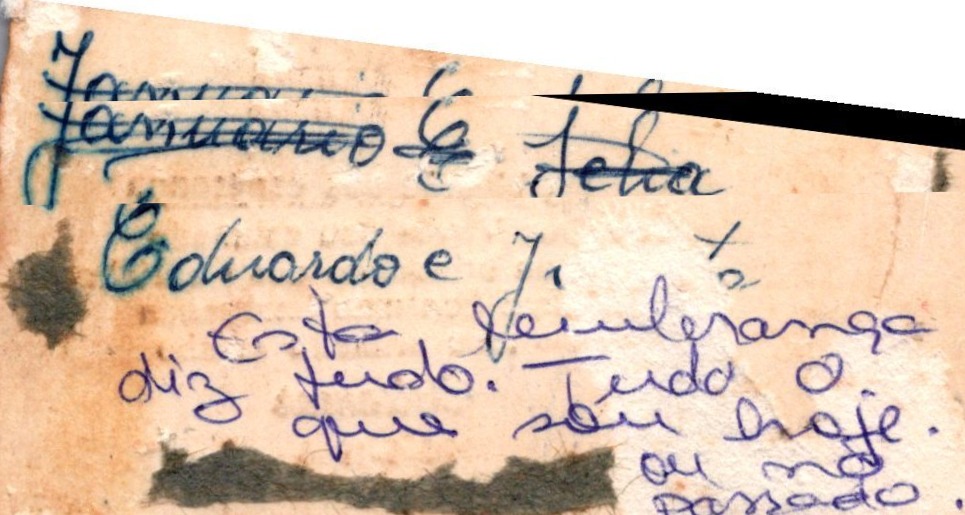 Januario E
Eduardo e
Esta lembrança
diz tudo. Tudo o
que sou hoje.
ou no
passado.